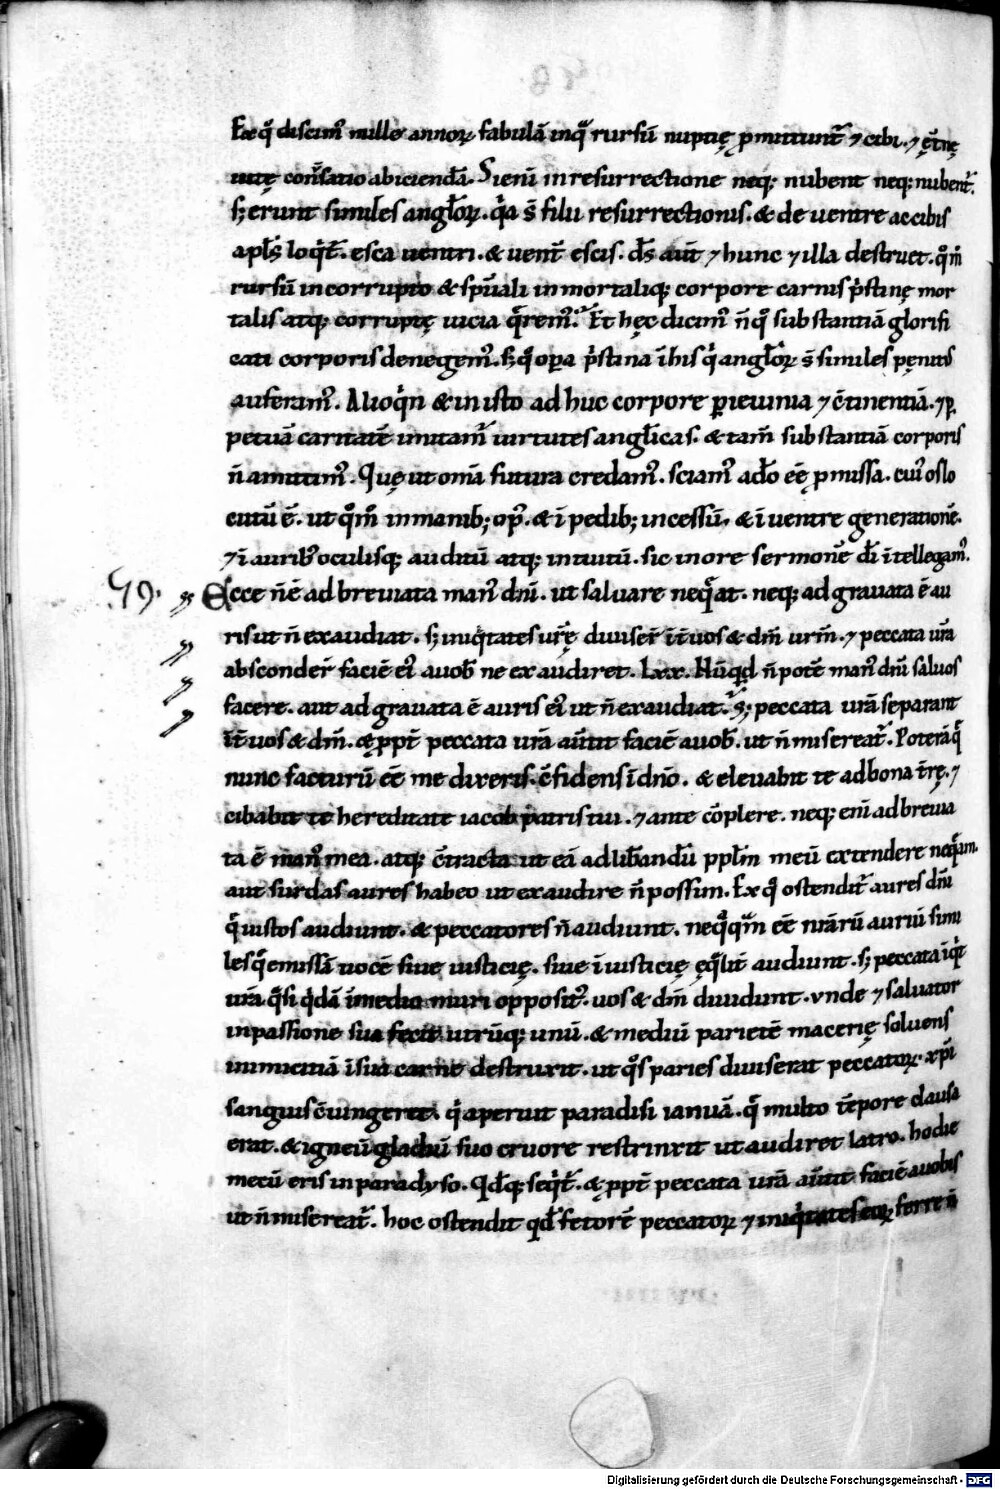 Ex q̊ discim᷒ mille annoꝝ fabulā inq̄ rursū nuptię ꝓmittunt᷑ ⁊ cibi. ⁊ t̄rnę
uitę cōn̄satio abiciendā. Si enī in resurrectione neq; nubent neq; nubent᷑.
s; erunt similes angl̄oꝝ. q̇a s̄ filii resurrectionis. & de uentre ac cibis
apl̄s loq̇t᷑. esca uentri. & uent̄ escis. d̄s aut̄ ⁊ hunc ⁊ illa destruet. q̊m̊
rursū incorrupto & sp̄uali inmortaliq; corpore carnis ṗstinę mor
talis atq; corruptę uicia q̄rem᷒. Et hęc dicim᷒ n̄ q̊ substantiā glorifi
cati corporis denegem᷒. s; q̊ oꝑa ṗstina ī his q̇ angl̄oꝝ s̄ similes pęnitus
auferam᷒. Alioq̇n & in isto ad huc corpore ꝑ ieiunia ⁊ c̄tinentiā. ⁊ ꝑ
petuā caritatē imitam᷑ uirtutes angl̄icas. & tam̄ substantiā corporis
n̄ amittim᷒. Quę ut om̄a futura credam᷒. sciam᷒ a d̄o ēē ꝓmissa. cui᷒ os lo
cutū ē. ut q̊m̊ in manib; op᷒. & ī pedib; incessū. & ī uentre generationē.
⁊ ī aurib᷒ oculisq; auditū atq; intuitū. sic in ore sermonē d̄i ītellegam᷒.
59. Ecce n̄ ē adbreuiata man᷒ dn̄i. ut saluare neq̄at. neq; adgrauata ē au
ris ut n̄ exaudiat. s; iniq̇tates ur̄ę diuiser̄ īt̄ uos & dm̄ urm̄. ⁊ peccata ur̄a
absconder̄ faciē ei᷒ a uob̄ ne exaudiret. Lxx. Nūq̇d n̄ potē man᷒ dn̄i saluos
facere. aut adgrauata ē auris ei᷒ ut n̄ exaudiat. S; peccata ur̄a separant
īt̄ uos & dm̄. & ꝓpt̄ peccata ur̄a au᷑tit faciē a uob̄. ut n̄ misereat᷑. Poterā q̄
nunc facturū ēē me dixeris. c̄fidens ī dn̄o. & eleuabit te ad bona t̄rę. ⁊
cibabit te hereditate iacob patris tui. ⁊ ante c̄plere. neq; enī adbreuia
ta ē man᷒ mea. atq; c̄tracta ut eā ad lib̄andū ppl̄m meū extendere neq̄am.
aut surdas aures habeo ut exaudire n̄ possim. Ex q̊ ostendit᷑ aures dn̄i
q̄ iustos audiunt. & peccatores n̄ audiunt. neq̄q̄m ēē nr̄arū auriū simi
les q̄ emissā uocē siue iusticię. siue iniusticię ęq̄lit̄ audiunt. s; peccata inq̇t
ur̄a q̄si q̇dā in medio muri opposit᷒. uos & dm̄ diuidunt. unde ⁊ saluator
in passione sua fecit utrūq; unū. & mediū parietē macerię soluens
inimicitiā ī sua carne destruxit. ut q̊s paries diuiserat peccatoꝝ. xp̄i
sanguis c̄iungeret. q̇ aperuit paradisi ianuā. q̄ multo tēpore clausa
erat. & igneū gladiū suo cruore restrinxit ut audiret latro. hodie
mecū eris in paradyso. Qd̄q; seq̇t᷑. & ꝓpt̄ peccata ur̄a au᷑tit faciē a uobis
ut n̄ misereat᷑. hoc ostendit qd̄ fetorē peccatoꝝ ⁊ iniq̇tates eoꝝ ferre n̄
Digitalisierung gefördert durch die Deutsche Forschungsgemeinschaft - DFG